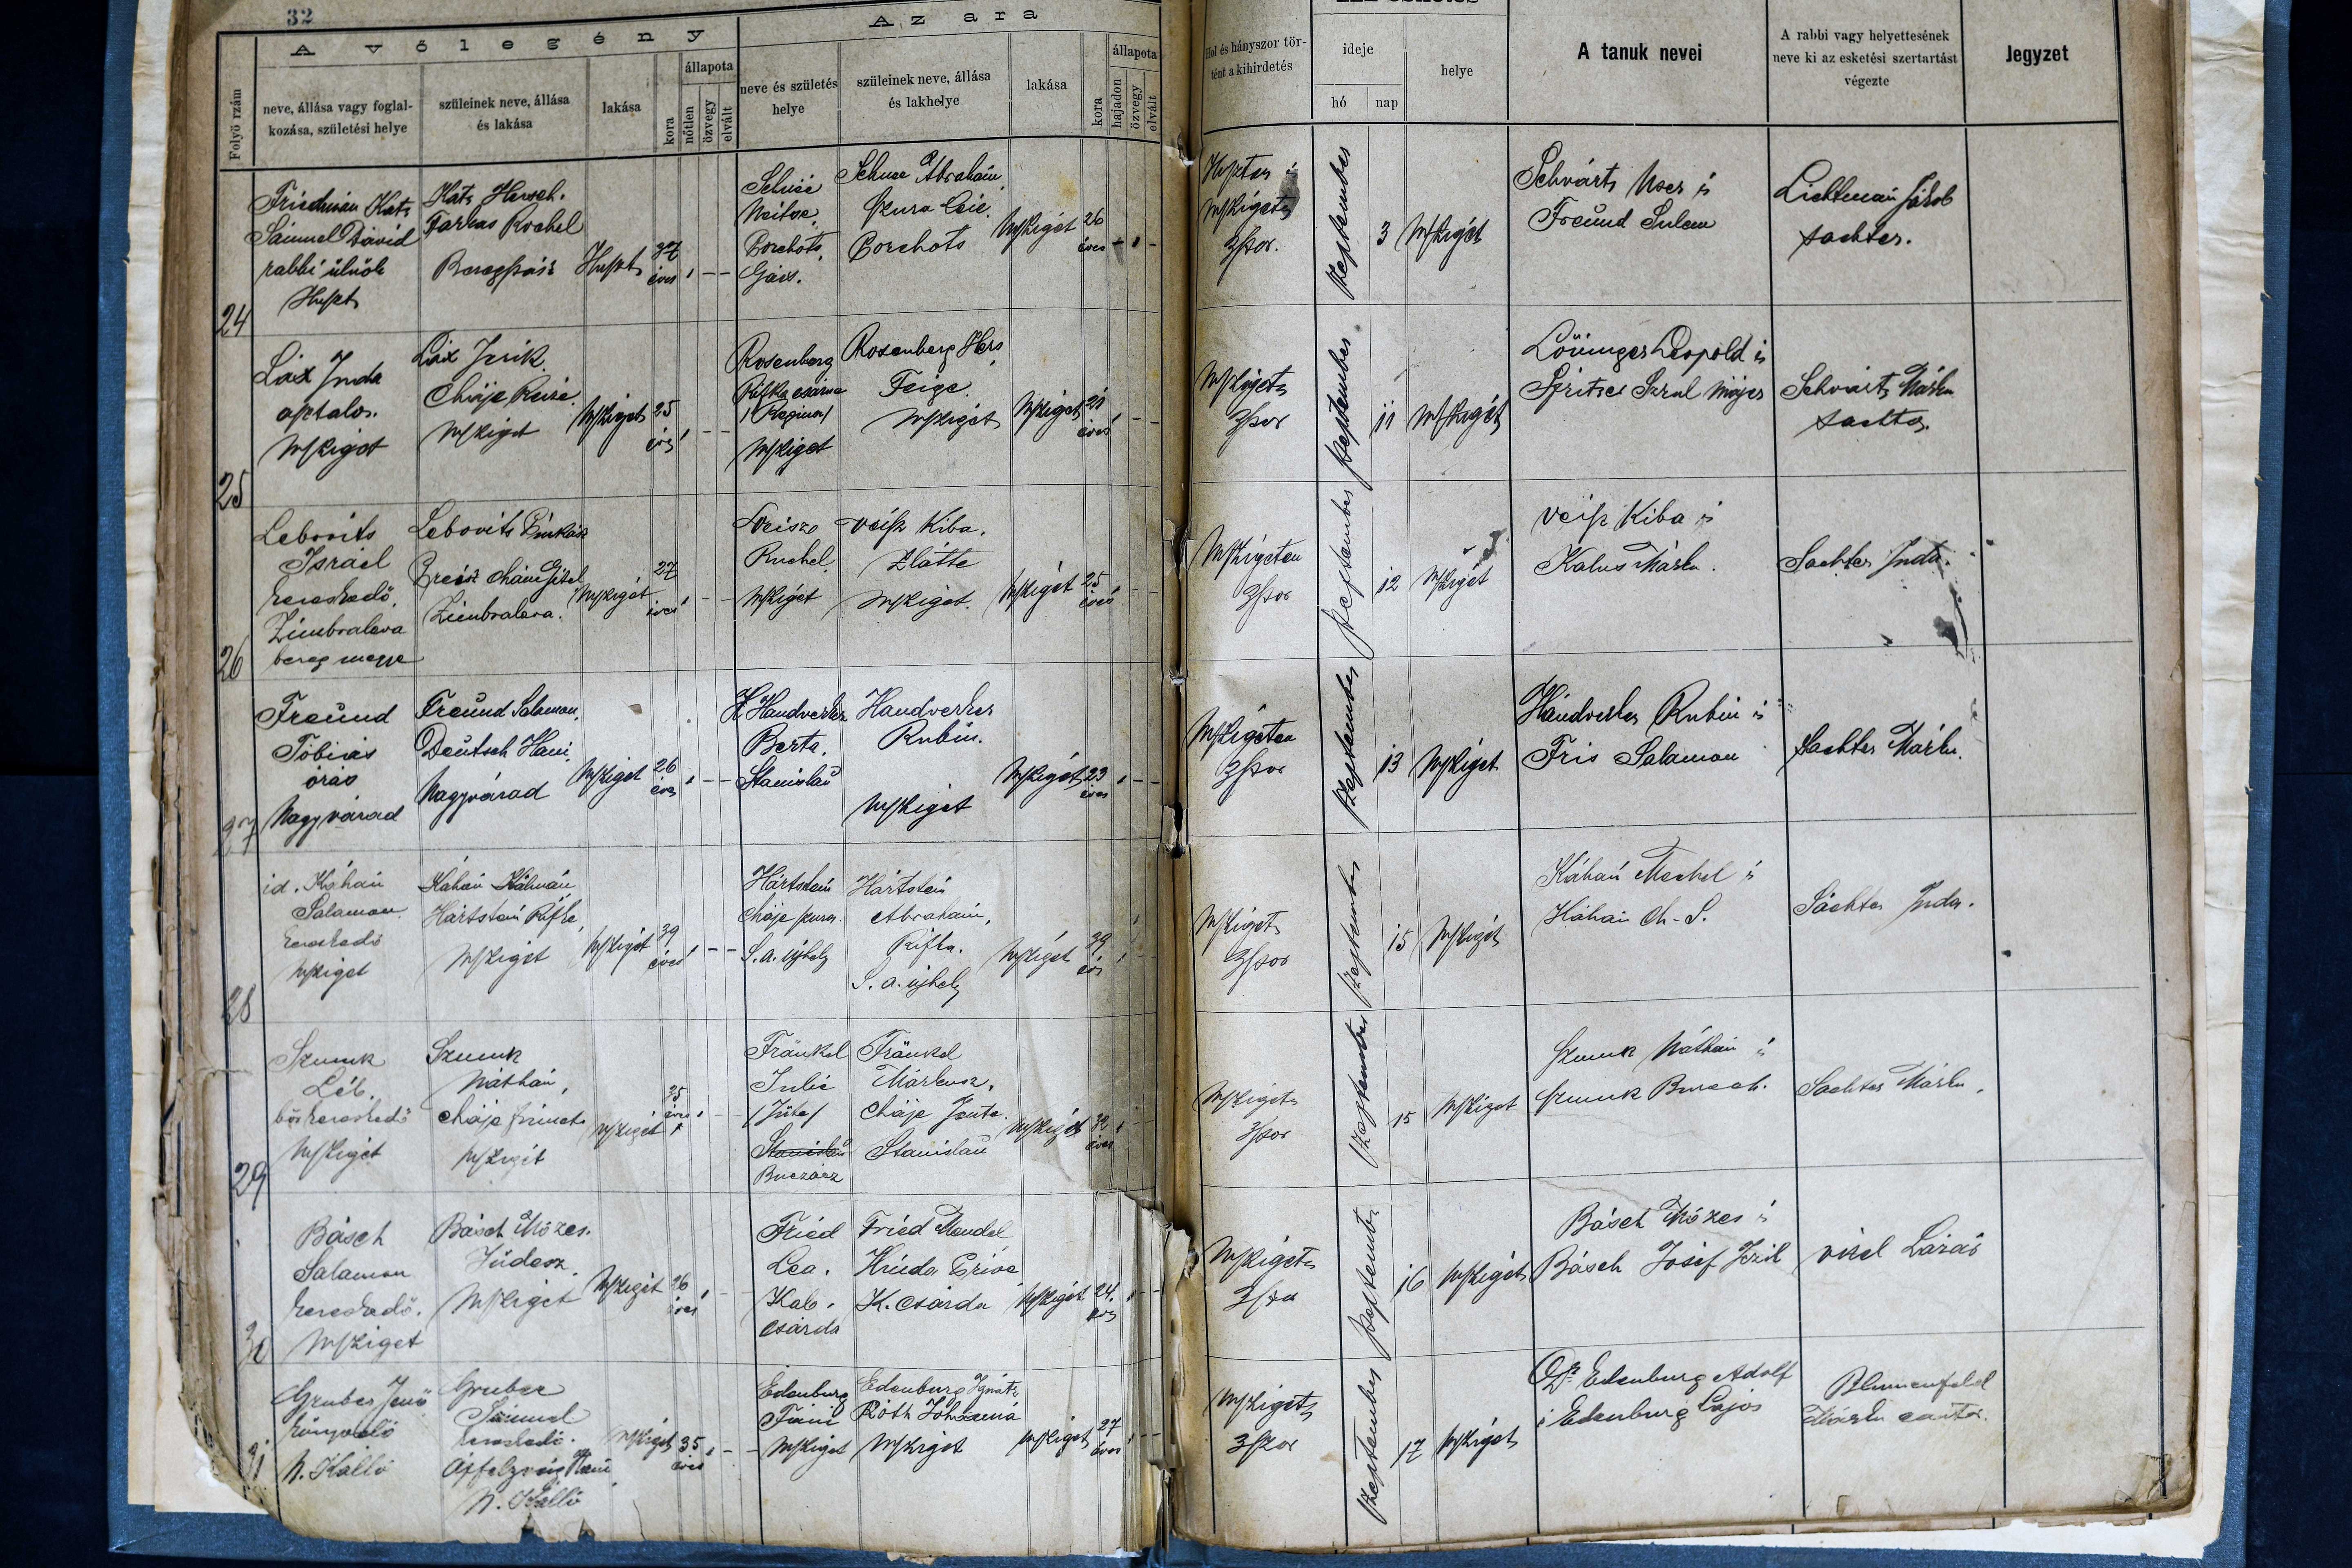 32
A vőlegény
Az ara
Folyó
neve, állása vagy foglal-
kozása, születési helye
szüleinek neve, állása
és lakása
lakása
kora
állapota
nőtlen
özvegy
elvált
neve és születés
helye
szüleinek neve, állása
és lakhelye
lakása
kora
állapota
hajadon
özvegy
elvált
Hol és hányszor tör-
tént a kihirdetés
ideje
hó
nap
helye
A tanuk nevei
A rabbi vagy helyettesének
neve ki az esketési szertartást
végezte
Jegyzet
24
Friedman Kats
Sámuel Dávid
rabbi ülnök
Huszt
Kats Hersch.
Farkas Rochel
Beregszász
Huszt
37
éves
Borchots,
Schnee Ábrahám
Szura Leie.
Borchots
MSziget
26
éves
MSzigeten
3szor.
szeptember
3
MSziget
Schvárts Uscher és
Freünd Sulem
Lichtman Jákob
sachter.
25
Láx Juda
asztalos.
MSziget
Láx Izrik.
Chaje Reize.
MSziget
MSziget
25
éves
Rosenberg
Rifke
(Regina)
MSziget
Rosenberg Hers
Feige.
MSziget
MSziget
21
éves
MSzigeten
3szor
szeptember
11
MSziget
Lövinger Leopold és
Spritser Szrul Májer
Schvárts Márku
sachter.
26
Lebovits
Israel
kereskedő.
Zimbraleva
bereg megye
Lebovits Pinkász
Zimbraleva.
MSziget
27
éves
Veisz
Ruchel.
MSziget
Veisz Kiba.
Zlátte
MSziget.
MSziget
25
éves
MSzigeten
3szor
szeptember
12
MSziget
Veisz Kiba és
Kalus Márku.
Sachter Juda.
27
Freünd
Tobiás
órás
Nagyvárad
Freünd Salamon,
Deütsch Hani,
Nagyvárad
MSziget
26
éves
Handverker
Berta.
Stanislaŭ
Handverker
Rubin.
MSziget
MSziget
23
éves
MSzigeten
3szor
szeptember
13
MSziget
Hándverker Rubin és
Fris Salamon
Sachter Márku.
28
id. Káhán
Salamon.
kereskedő
MSziget
Káhán Kálmán
Hártstein Rifke,
MSziget
MSziget
39
éves
Hártstein
Chaje szura.
S. a. újhely
Hártstein
Abrahám,
Rifka.
S. a. újhely
MSziget
39
éves
MSzigeten
3szor
szeptember
15
MSziget
Káhán Mechel és
Káhán Ch. S.
Sáchter Juda.
29
Szmuk
Léb.
bőrkereskedő
MSziget
Szmuk
Náthán,
MSziget
MSziget
35
éves
Fränkel
Julie
(Jüte)
Stanislaŭ
Buczácz
Fränkel
Márkusz,
Chaje Jente.
Stanislaŭ
MSziget
32
éves
MSzigeten
3szor
szeptember
15
MSziget
Szmuk Náthán és
Szmuk Buroch.
Sachter Márku.
30
Básch
Salamon
kereskedő.
MSziget
Básch Mózes.
Jüdesz.
MSziget
MSziget
26
éves
Fried
Lea.
Kab.
csárda
Fried Mendel
Hinda Drive
K. csárda
MSziget
24.
éves
MSzigeten
szeptember
16
MSziget
Básch Mózes és
Básch Josef Izik
Vizel Lázár
31
Gruber Jenő
könyvelő
N. Kálló
Gruber
Sámuel
kereskedő.
Apfelzveig Hani
N. Kálló
MSziget
35
éves
Edenburg
Fáni
MSziget
Edenburg Ignáts
Róth Johanná
MSziget
MSziget
27
éves
MSzigeten
3szor
szeptember
17
MSziget
Dr. Edenburg Adolf
és Edenburg Lajos
Blumenfeld
Márku cantor.